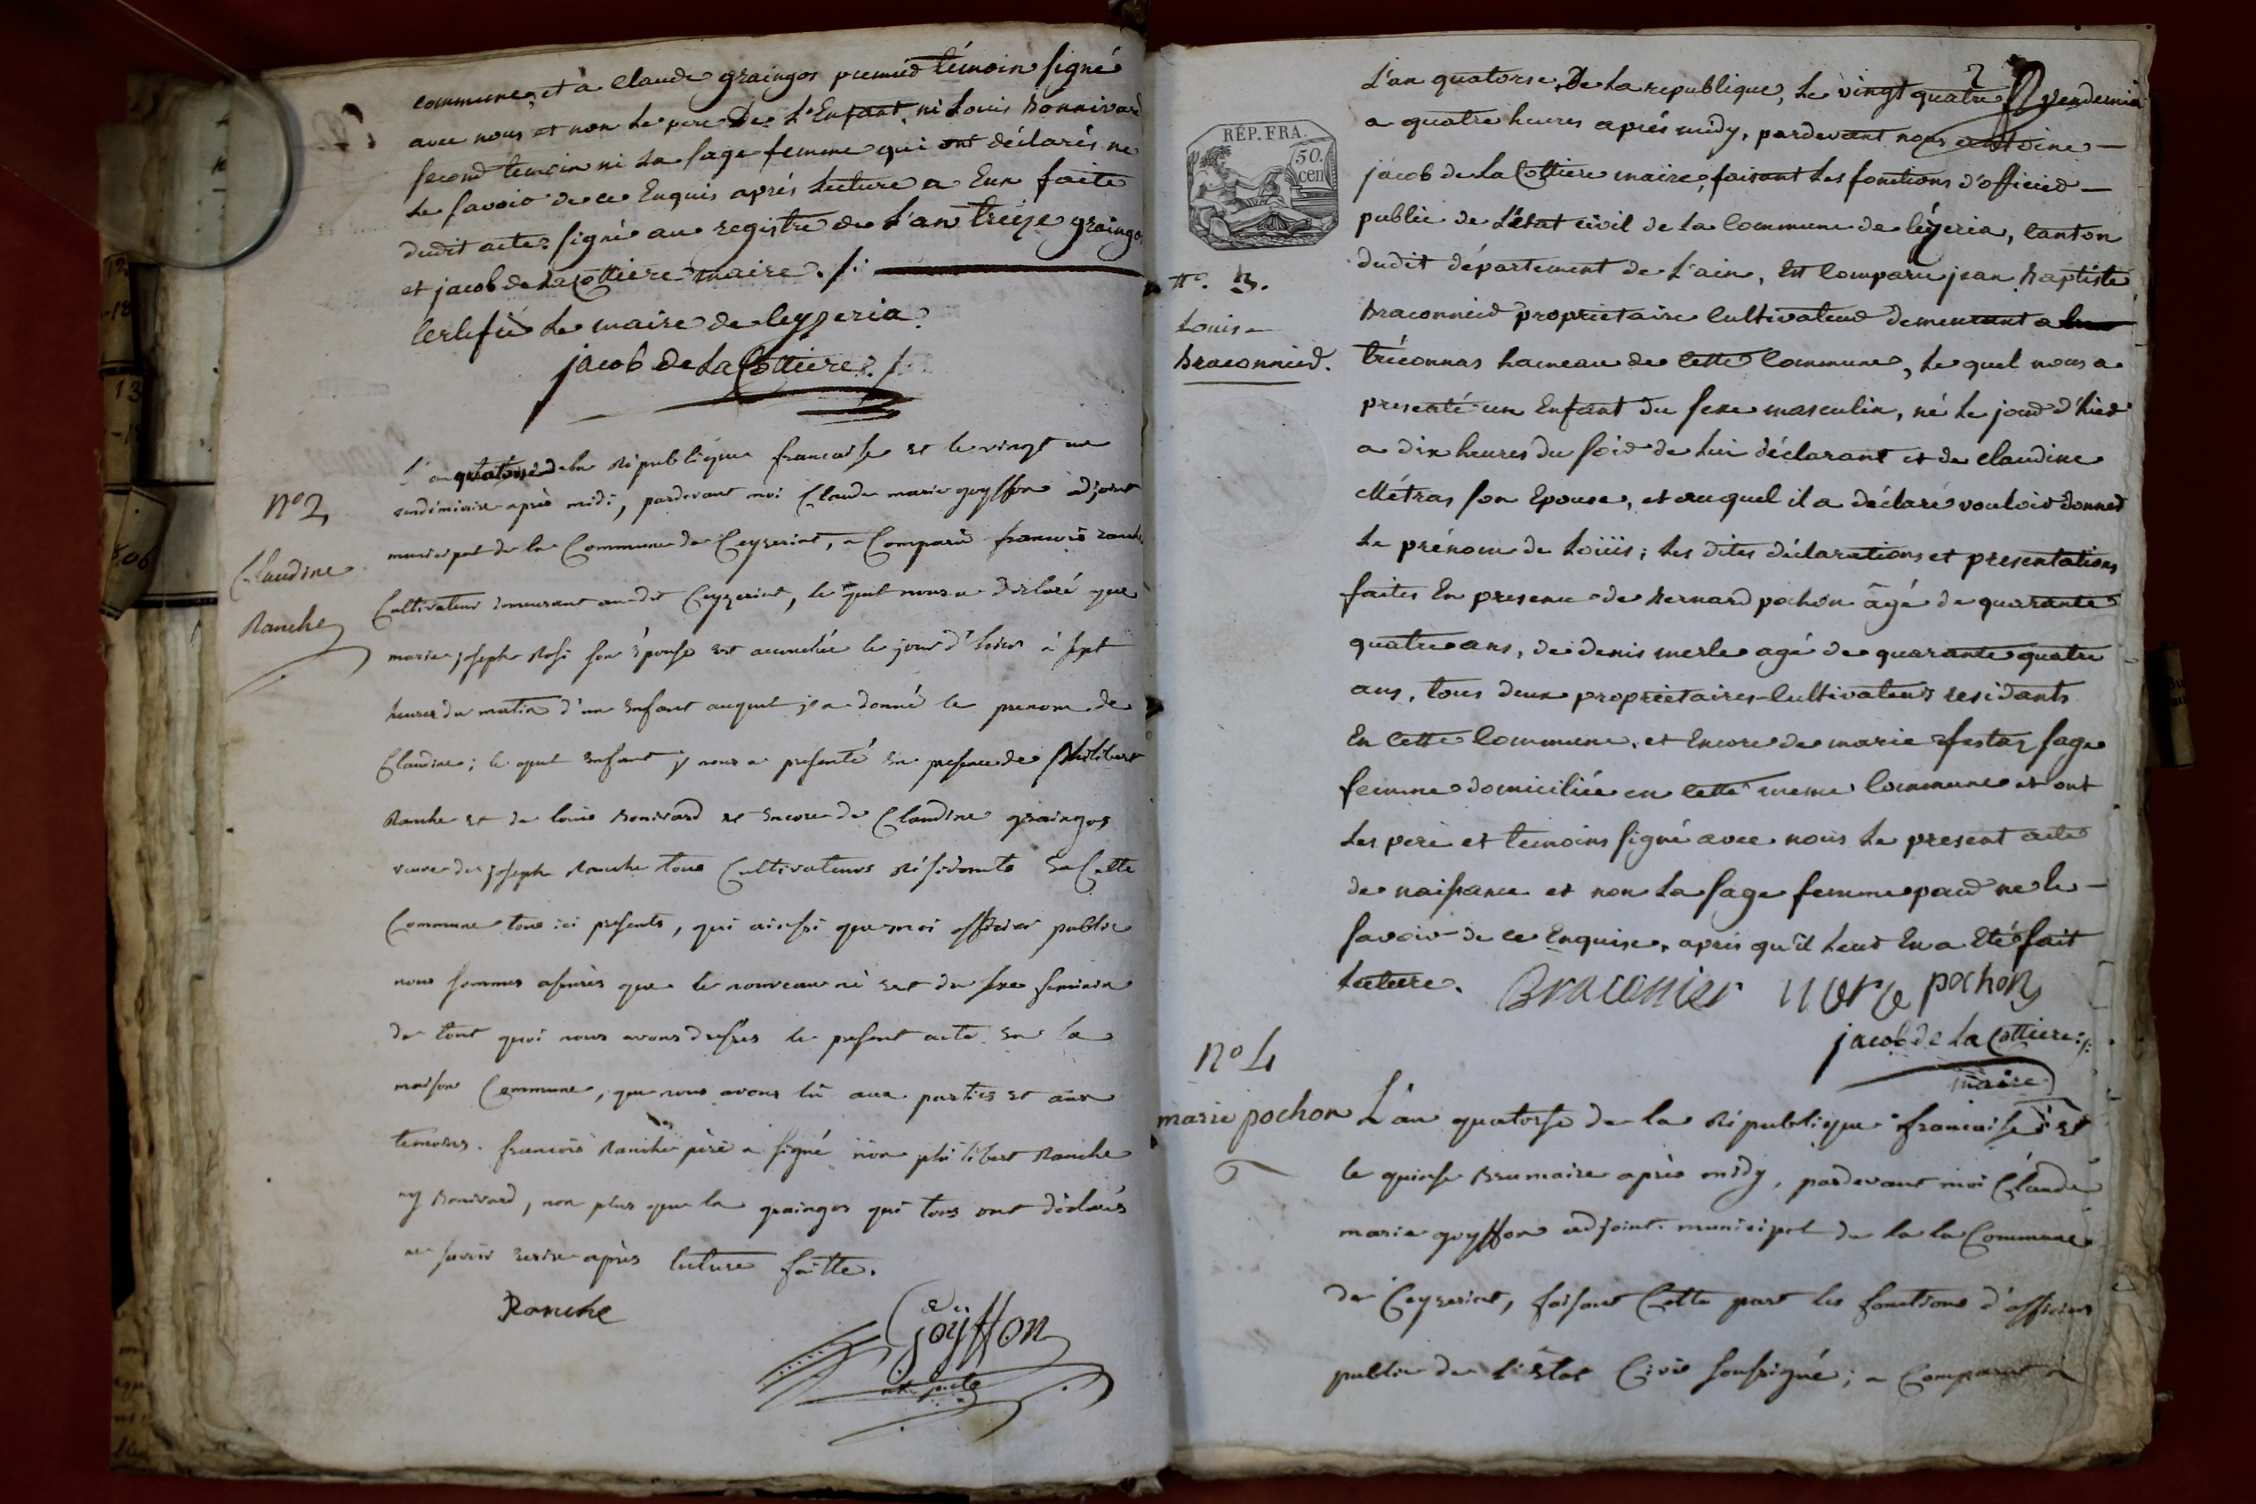 commune, et a claude graingos premier témoin signé
avec nous et non le pere De L'Enfant, ni Louis Bonnivard
second temoin ni La sage femme qui ont déclarés ne
le savoir de ce Enquis aprés lecture a Eux faite
dudit acte, signé au registre de L'an treize graingos
et jacob de La Cottiere maire ./.
Certifié le maire de Ceyzeria
jacob de La Cottiere ./.
N° 2
Claudine
Ranche
L'an quatorse de la Republique francaise et le vingt un
vendémiaire aprés midi, pardevant moi Claude marie goyffon adjoint
municipal de la Commune de Ceyzeriat, a Comparu francois ranche
Cultivateur demeurant audit Ceyzeriat, le quel nous a declaré que
marie joseph Rosi son épouse est accouchée le jour d'hier à sept
heures du matin d'un enfant auquel il a donné le prenom de
Claudine; le quel enfant il nous a presenté en presence de philibert
Ranche et de louis Bonivard et encore de Claudine graingos
veuve de joseph Ranche tous Cultivateurs Residants en Cette
Commune tous ici presents, qui ainssi que moi officier public
nous sommes assurés que le nouveau né est du sexe feminin
de tout quoi nous avons dressés le present acte en la
maison Commune, que nous avons lû aux parties et aux
temoins. francois Ranche père a signé non philibert Ranche
ny Bonivard, non plus que la graingos qui tous ont déclarés
ne savoir ecrire après lecture faitte.
Ranche
Goÿffon
RÉP. FRA.
50.
cen
2
L'an quatorse De La republique, Le vingt quatre vendemiaire
a quatre heures aprés midy, pardevant nous antoine
jacob de La Cottiere maire, faisant Les fonctions d'officier
public de L'état civil de La Commune de Ceÿzeria, Canton
dudit département de L'ain, Est Comparu jean Baptiste
N°. 3.
Louis
Braconnier.
Braconnier proprietaire Cultivateur demeurant a
tréconnas hameau de Cette Commune, Le quel nous a
presenté un Enfant du sexe masculin, né Le jour d'hier
a dix heures du soir de Lui déclarant et de claudine
Métras son Epouse, et auquel il a déclaré vouloir donner
Le prénom de Loüis; Les dites déclarations et presentations
faites En presence de Bernard pochon âgé de quarante
quatre ans, de denis merle agé de quarante quatre
ans, tous deux proprietaires-Cultivateurs residants
En Cette Commune, et Encore de marie festaz sage
femme domiciliée en Cette meme Commune et ont
Les pere et temoins signé avec nous Le present acte
de naissance et non La sage femme pour ne le
savoir de ce Enquise, aprés qu'il Leur En a Eté fait
Lecture. Braconier merle pochon
jacob de La Cottiere ./.
maire
N° 4
marie pochon
L'an quatorse de la Republique francaise et
le quinse Brumaire aprés midy, pardevant moi Claude
marie goyffon adjoint municipal de la la Commune
de Ceyzeriat, faisant Cette part les fonctions d'officier
public de L'état Civil soussigné; a Comparu